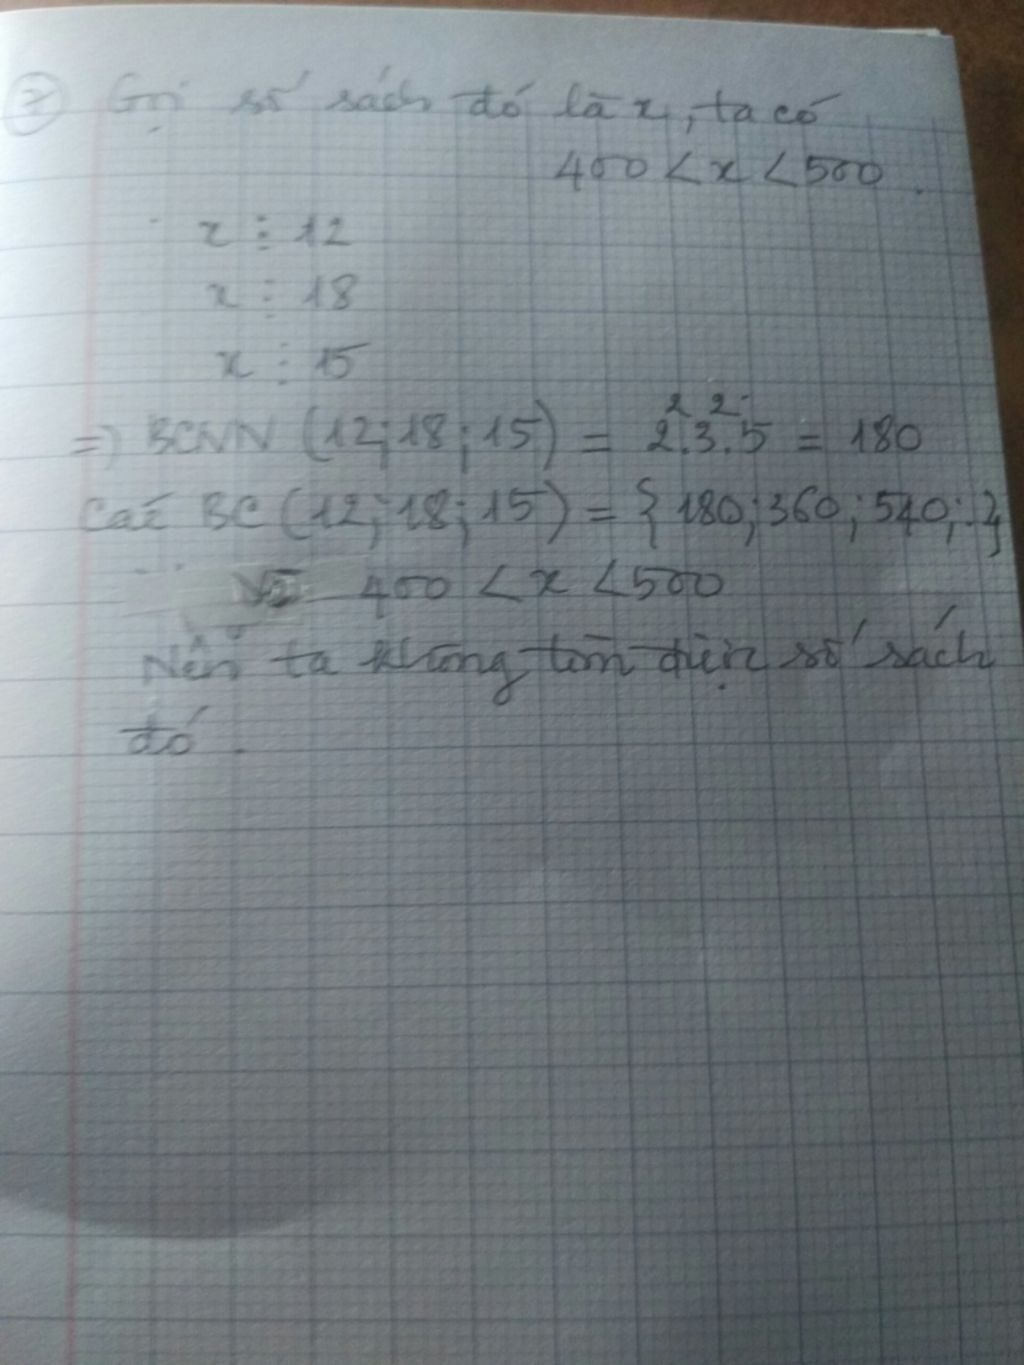 ② Gọi số sách đó là x, ta có
400 < x < 500.
x ⋮ 12
x ⋮ 18
x ⋮ 15
=> BCNN (12; 18; 15) = 2².3².5 = 180
Các BC (12; 18; 15) = { 180; 360; 540; .}
Vì 400 < x < 500
Nên ta không tìm được số sách
đó.